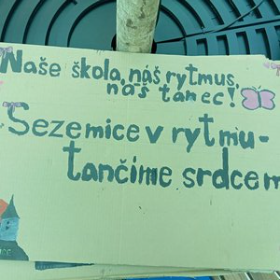 Naše škola, náš rytmus,
náš tanec!
Sezemice v rytmu -
tančíme srdcem